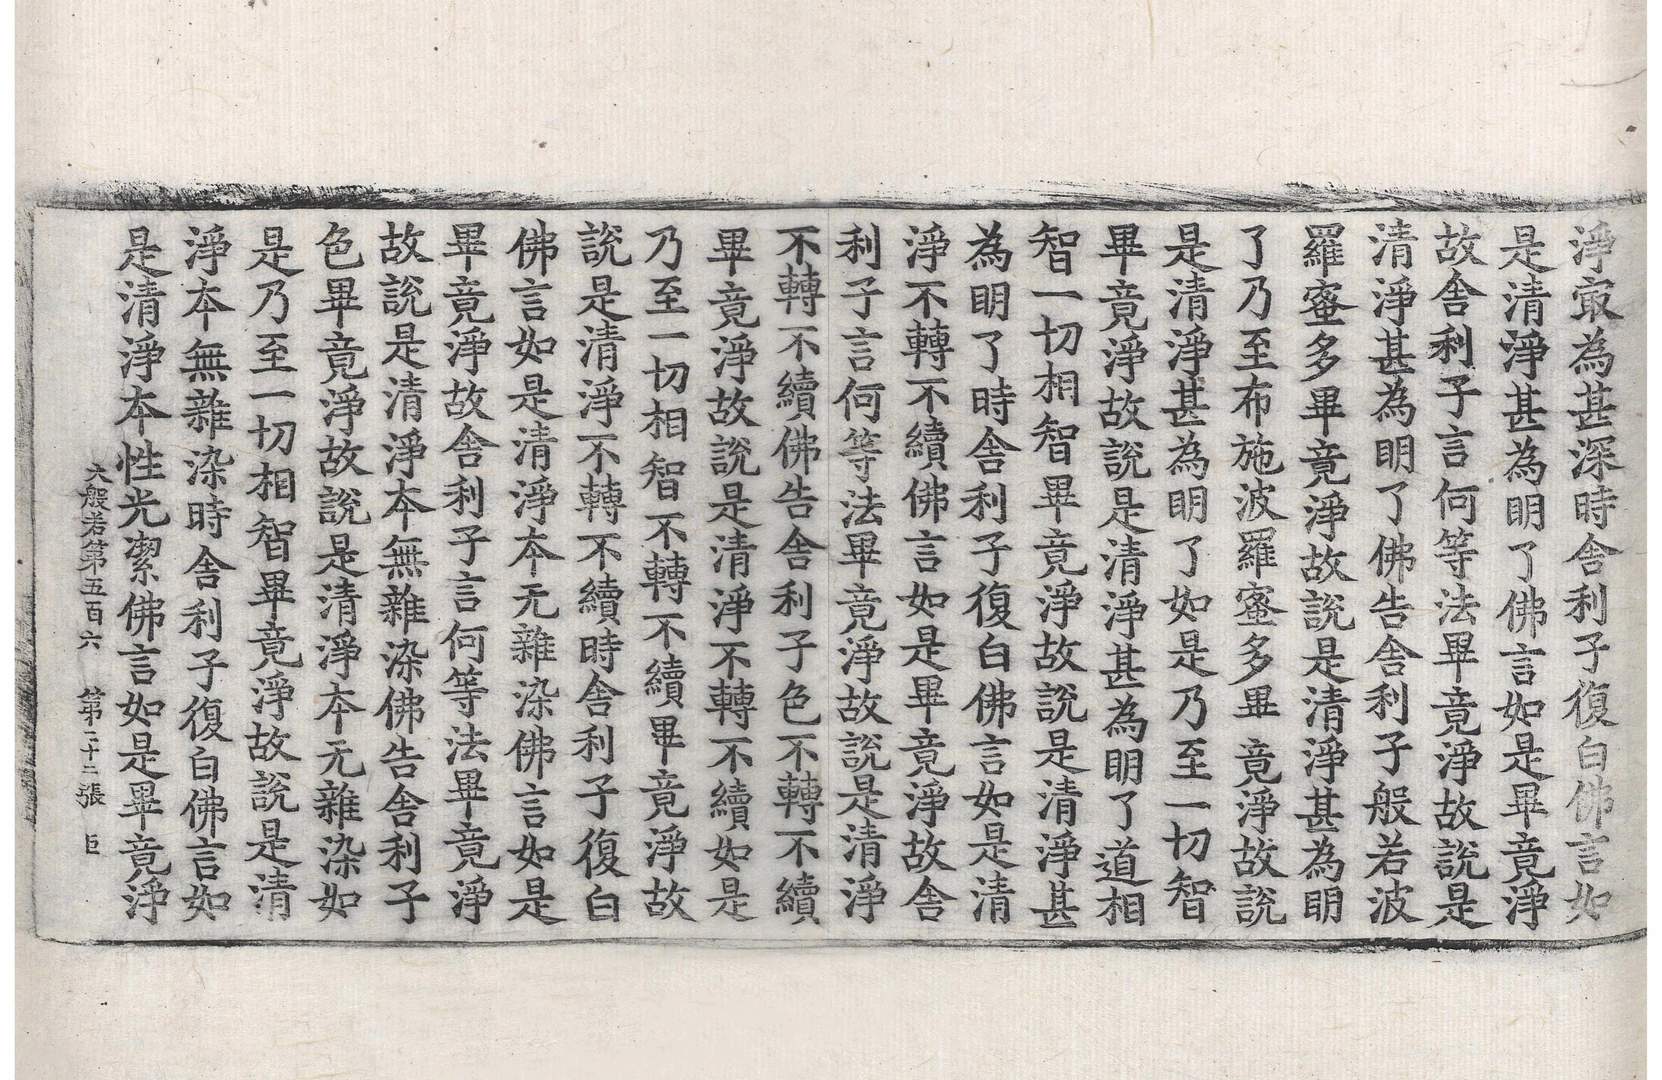 淨㝡為甚深時舍利子復白佛言如
是清淨甚為明了佛言如是畢竟淨
故舍利子言何等法畢竟淨故說是
清淨甚為明了佛告舍利子般若波
羅蜜多畢竟淨故說是清淨甚為明
了乃至布施波羅蜜多畢竟淨故說
是清淨甚為明了如是乃至一切智
畢竟淨故說是清淨甚為明了道相
智一切相智畢竟淨故說是清淨甚
為明了時舍利子復白佛言如是清
淨不轉不續佛言如是畢竟淨故舍
利子言何等法畢竟淨故說是清淨
不轉不續佛告舍利子色不轉不續
畢竟淨故說是清淨不轉不續如是
乃至一切相智不轉不續畢竟淨故
說是清淨不轉不續時舍利子復白
佛言如是清淨本无雜染佛言如是
畢竟淨故舍利子言何等法畢竟淨
故說是清淨本無雜染佛告舍利子
色畢竟淨故說是清淨本无雜染如
是乃至一切相智畢竟淨故說是清
淨本無雜染時舍利子復白佛言如
是清淨本性光潔佛言如是畢竟淨
大般若第五百六 第二十二張 巨